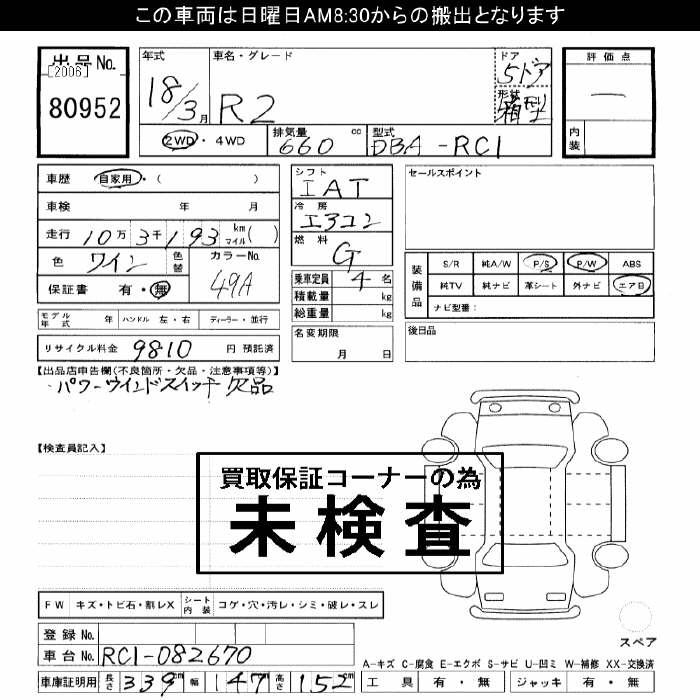 この車両は日曜日AM8:30からの搬出となります
出品No.
[2006]
80952
年式
18/3月
車名・グレード
R2
ドア
5ドア
形状
箱型
評価点
—
内装
2WD・4WD
排気量 660 cc
型式 DBA-RC1
車歴 自家用・( )
車検 年 月
走行 10万3千193 km マイル( )
色 ワイン 色替 カラーNo. 49A
保証書 有・無
シフト
IAT
冷房
エアコン
燃料
G
乗車定員 4 名
積載量 kg
総重量 kg
名変期限
月 日
セールスポイント
装備品
S/R 純A/W P/S P/W ABS
純TV 純ナビ 革シート 外ナビ エアB
ナビ型番:
後日品
モデル年式 年 ハンドル 左・右 ディーラー・並行
リサイクル料金 9810 円 預託済
【出品店申告欄(不良箇所・欠品・注意事項等)】
・パワーウインドスイッチ欠品
【検査員記入】
買取保証コーナーの為
未検査
FW キズ・トビ石・割レX シート内装 コゲ・穴・汚レ・シミ・破レ・スレ
登録No.
車台No. RC1-082670
車庫証明用 長さ 339cm 幅 147cm 高さ 152cm
スペア
A-キズ C-腐食 E-エクボ S-サビ U-凹ミ W-補修 XX-交換済
工具 有・無 ジャッキ 有・無